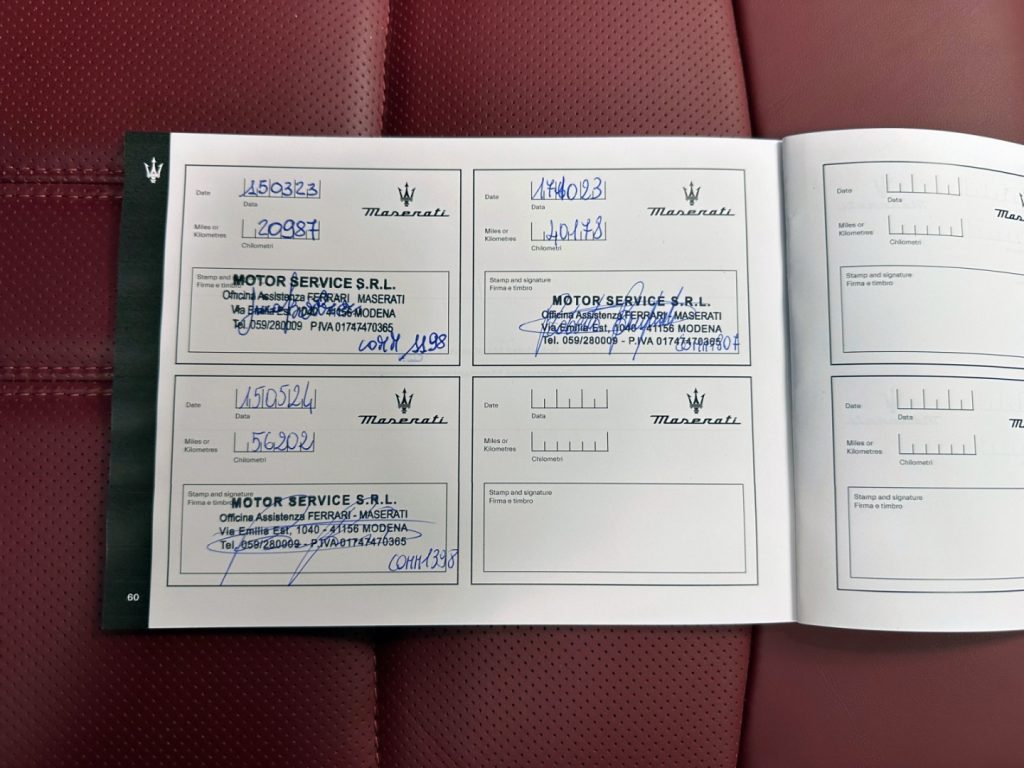 Date 150323
Data
Maserati
Miles or
Kilometres 20987
Chilometri
Stamp and
Firma e timbro
MOTOR SERVICE S.R.L.
Officina Assistenza FERRARI - MASERATI
Via Emilia Est, 1040 - 41156 MODENA
Tel. 059/280009 P.IVA 01747470365
COMM 1198
Date
Data
Maserati
Miles or
Kilometres 40178
Chilometri
Stamp and signature
Firma e timbro
MOTOR SERVICE S.R.L.
Officina Assistenza FERRARI - MASERATI
Via Emilia Est, 1040 - 41156 MODENA
Tel. 059/280009 - P.IVA 01747470365
Date 150524
Data
Maserati
Miles or
Kilometres 56202
Chilometri
Stamp and signature
Firma e timbro
MOTOR SERVICE S.R.L.
Officina Assistenza FERRARI - MASERATI
Via Emilia Est, 1040 - 41156 MODENA
Tel. 059/280009 - P.IVA 01747470365
COMM 1398
Date
Data
Maserati
Miles or
Kilometres
Chilometri
Stamp and signature
Firma e timbro
60
Date
Data
Miles or
Kilometres
Chilometri
Stamp and signature
Firma e timbro
Date
Data
Miles or
Kilometres
Chilometri
Stamp and signature
Firma e timbro